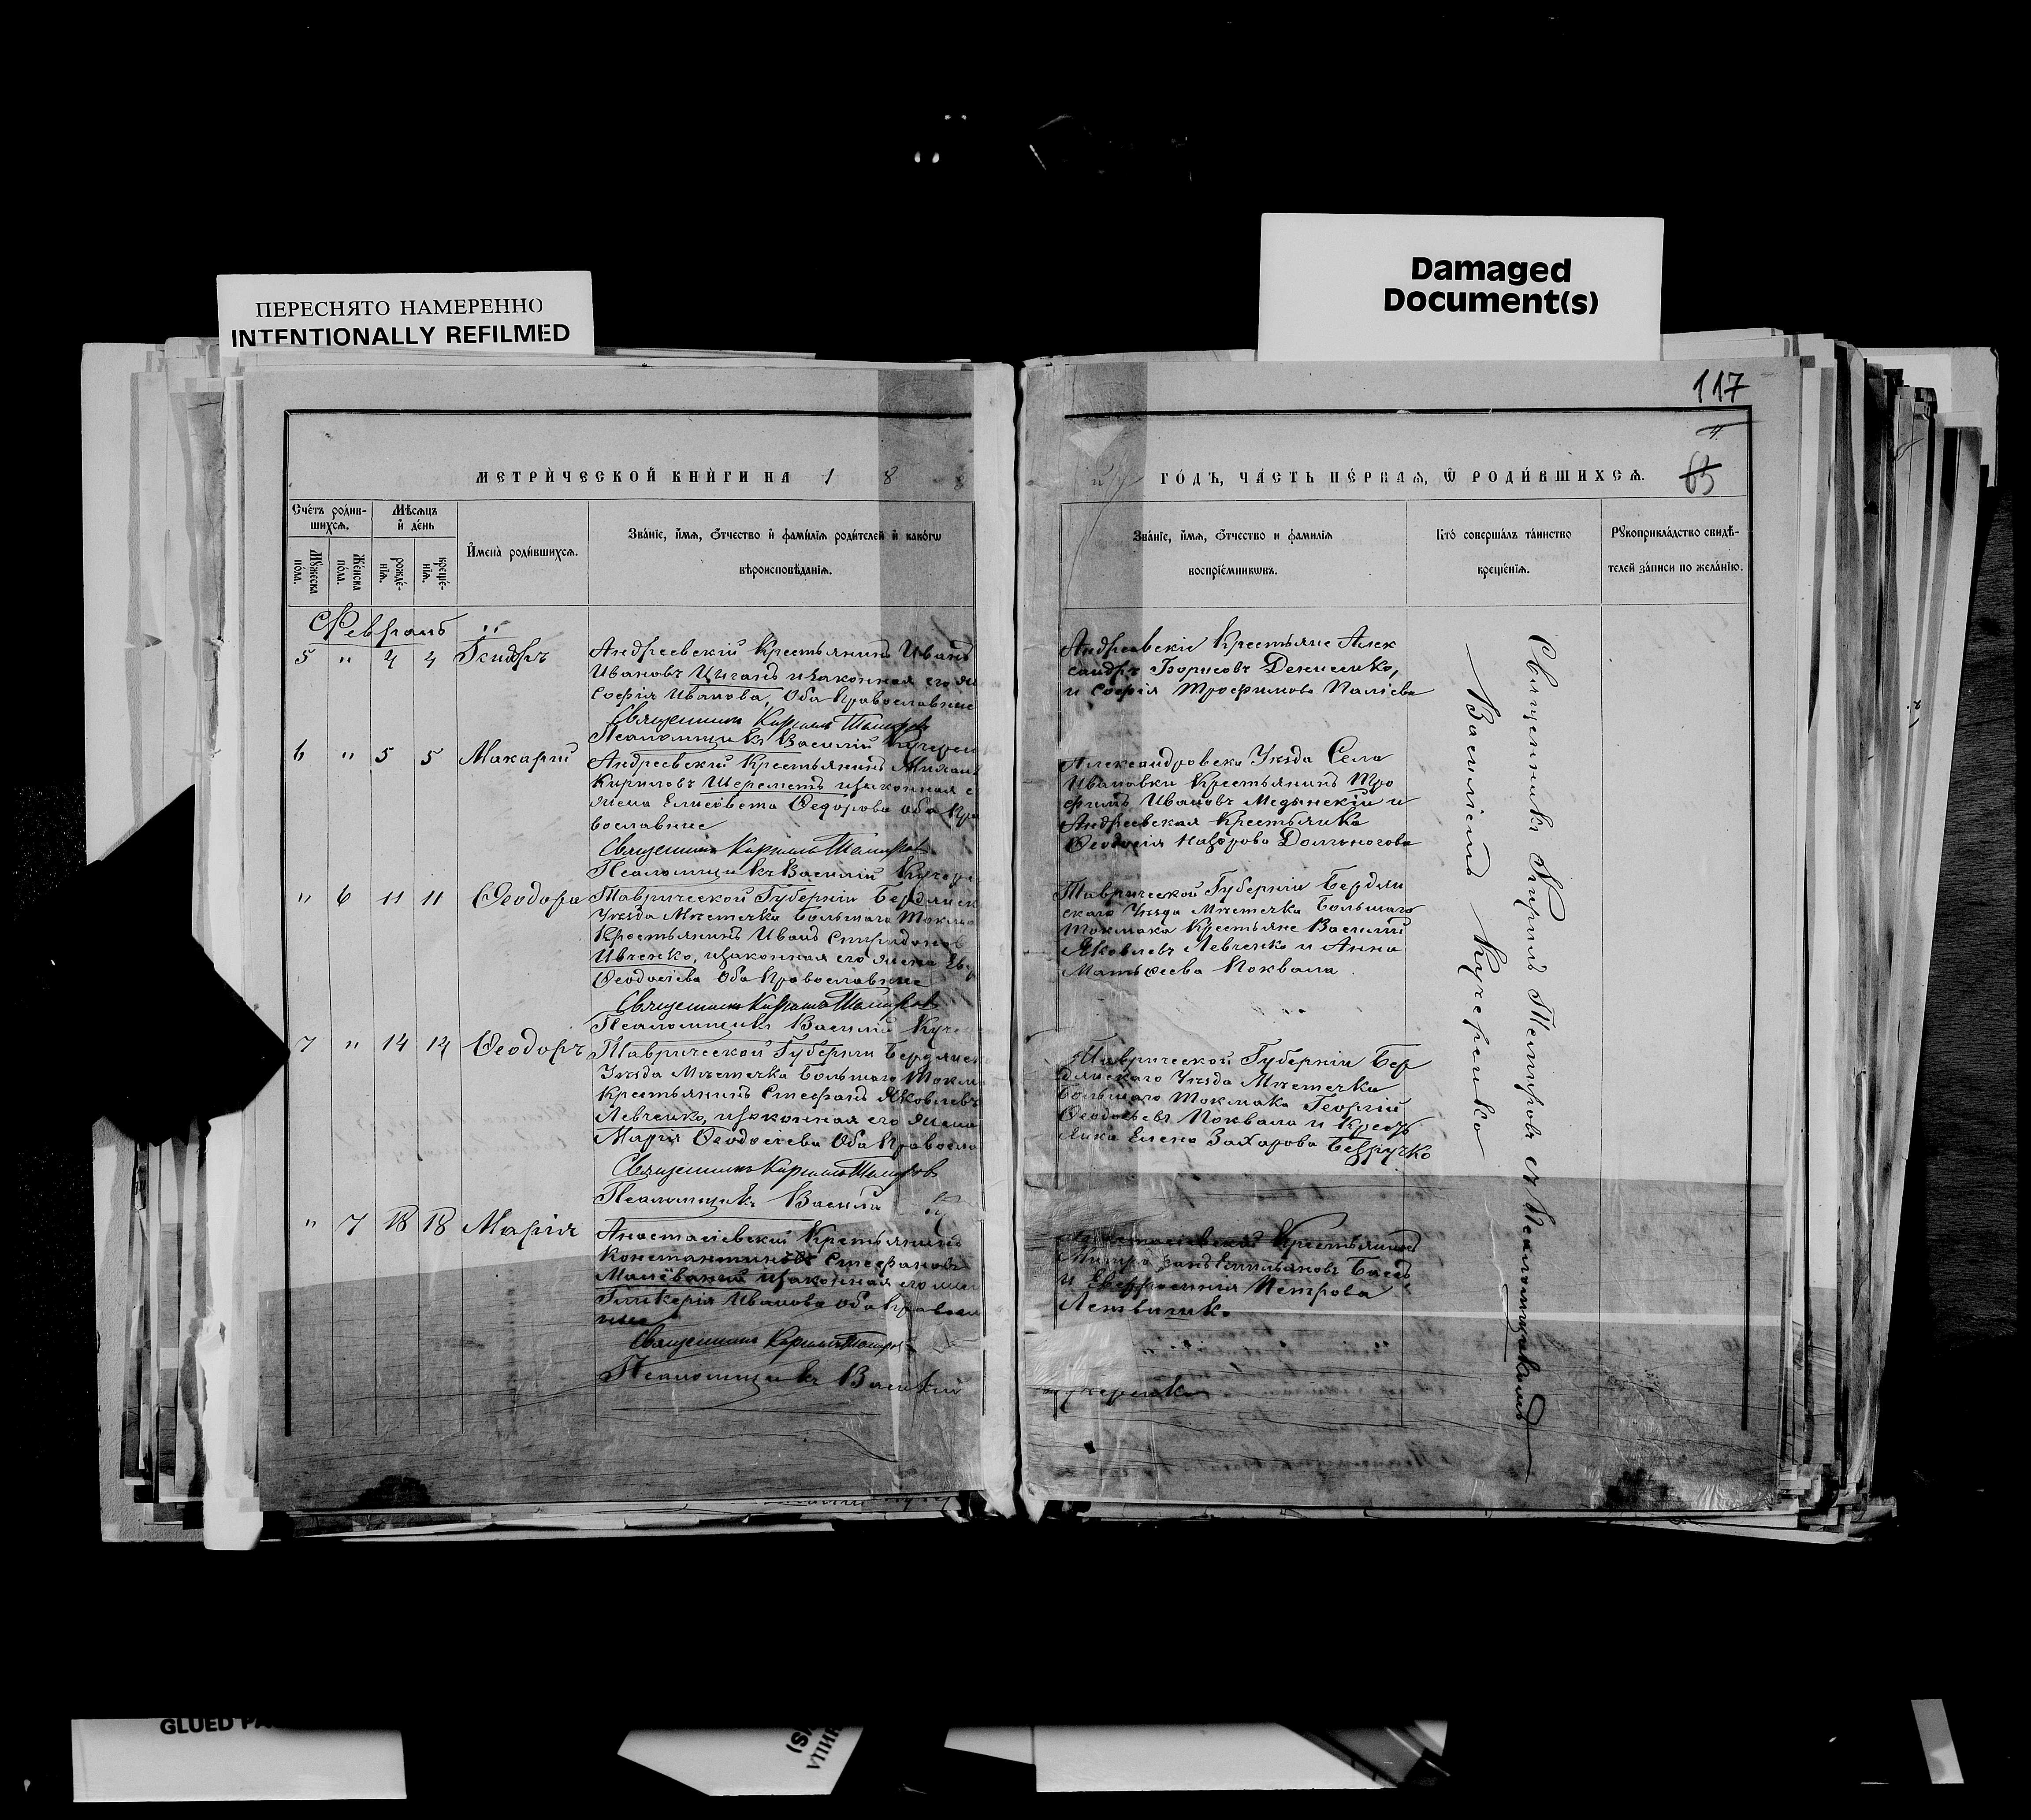 ПЕРЕСНЯТО НАМЕРЕННО
INTENTIONALLY REFILMED
Damaged
Document(s)
117
4
63
МЕТРИ́ЧЕСКОЙ КНИ́ГИ НА 1 8 8
ГО́ДЪ, ЧА́СТЬ ПЕ́РВАЯ, Ѿ РОДИ́ВШИХСѦ.
Сче́тъ роди́в-
шихсѧ.
Мꙋжеска по́ла.
Же́нска по́ла.
Мѣ́сѧцъ
и҆ де́нь
рожде́-
нїѧ.
креще́-
нїѧ.
И҆мена̀ роди́вшихсѧ.
Зва́нїе, и҆́мѧ, ѻ҆́тчество и҆ фами́лїѧ роди́телей и҆ како́гѡ
вѣроисповѣ́данїѧ.
Зва́нїе, и҆́мѧ, ѻ҆́тчество и фами́лїѧ
воспрїе́мникѡвъ.
Кто̀ соверша́лъ та́инство
креще́нїѧ.
Рꙋкоприкла́дство свидѣ́-
телей за́писи по жела́нїю.
Февраль
5 " 4 4
Андреевскій Крестьянинъ Иванъ
Ивановъ Цыганъ и законная его
Софія Иванова, Оба Православные
Священникъ Кирилъ
Псаломщикъ Василій
Андреевскіе Крестьяне Алек
сандръ Борисовъ Денисенко,
и Софія Трофимова Паліева
6 " 5 5 Макарій
Андреевскій Крестьянинъ
Кириловъ Шереметъ и законная
жена Елисавета Федорова Оба Пра
вославные
Священникъ Кирилъ
Псаломщикъ Василій
Александровска Уѣзда Села
Ивановки Крестьянинъ Тро
фимъ Ивановъ Медынскій и
Андреевская Крестьянка
Феодосія Назарова Долгоногова
" 6 11 11 Феодора
Таврической Губерніи Бердянск
Уѣзда Мѣстечка Большаго Токма
Крестьянинъ Иванъ Спиридоновъ
Ивченко, и законная его жена
Феодосіева Оба Православные
Священникъ Кирилъ
Псаломщикъ Василій
Таврической Губерніи Бердян
скаго Уѣзда Мѣстечка Большаго
Токмака Крестьяне Василий
Яковлевъ Левченко и Анна
Матѳеева Поквала.
7 " 14 14 Феодоръ
Таврической Губерніи Бердянск
Уѣзда Мѣстечка Большаго Токма
Крестьянинъ Стефанъ Яковлевъ
Левченко, и законная его жена
Марія Феодосіева Оба Правосла
Священникъ Кирилъ
Псаломщикъ Василій
Таврической Губерніи Бер
дянскаго Уѣзда Мѣстечка
Большаго Токмака Георгій
Феодосьевъ Поквала и Кресть
янка Елена Захарова Безручко
" 7 18 18 Марія
Анастасіевскій Крестьянинъ
Константиновъ Стефановъ
и законная его
Гликерія Ивановa оба Правосла
вные
Священникъ Кирилъ
Псаломщикъ Василій
Крестьянинъ
Емильяновъ Басъ
и Евфросинія Петрова
Священникъ Кирилъ съ Псаломщикомъ
Василіемъ Кучеренко
GLUED